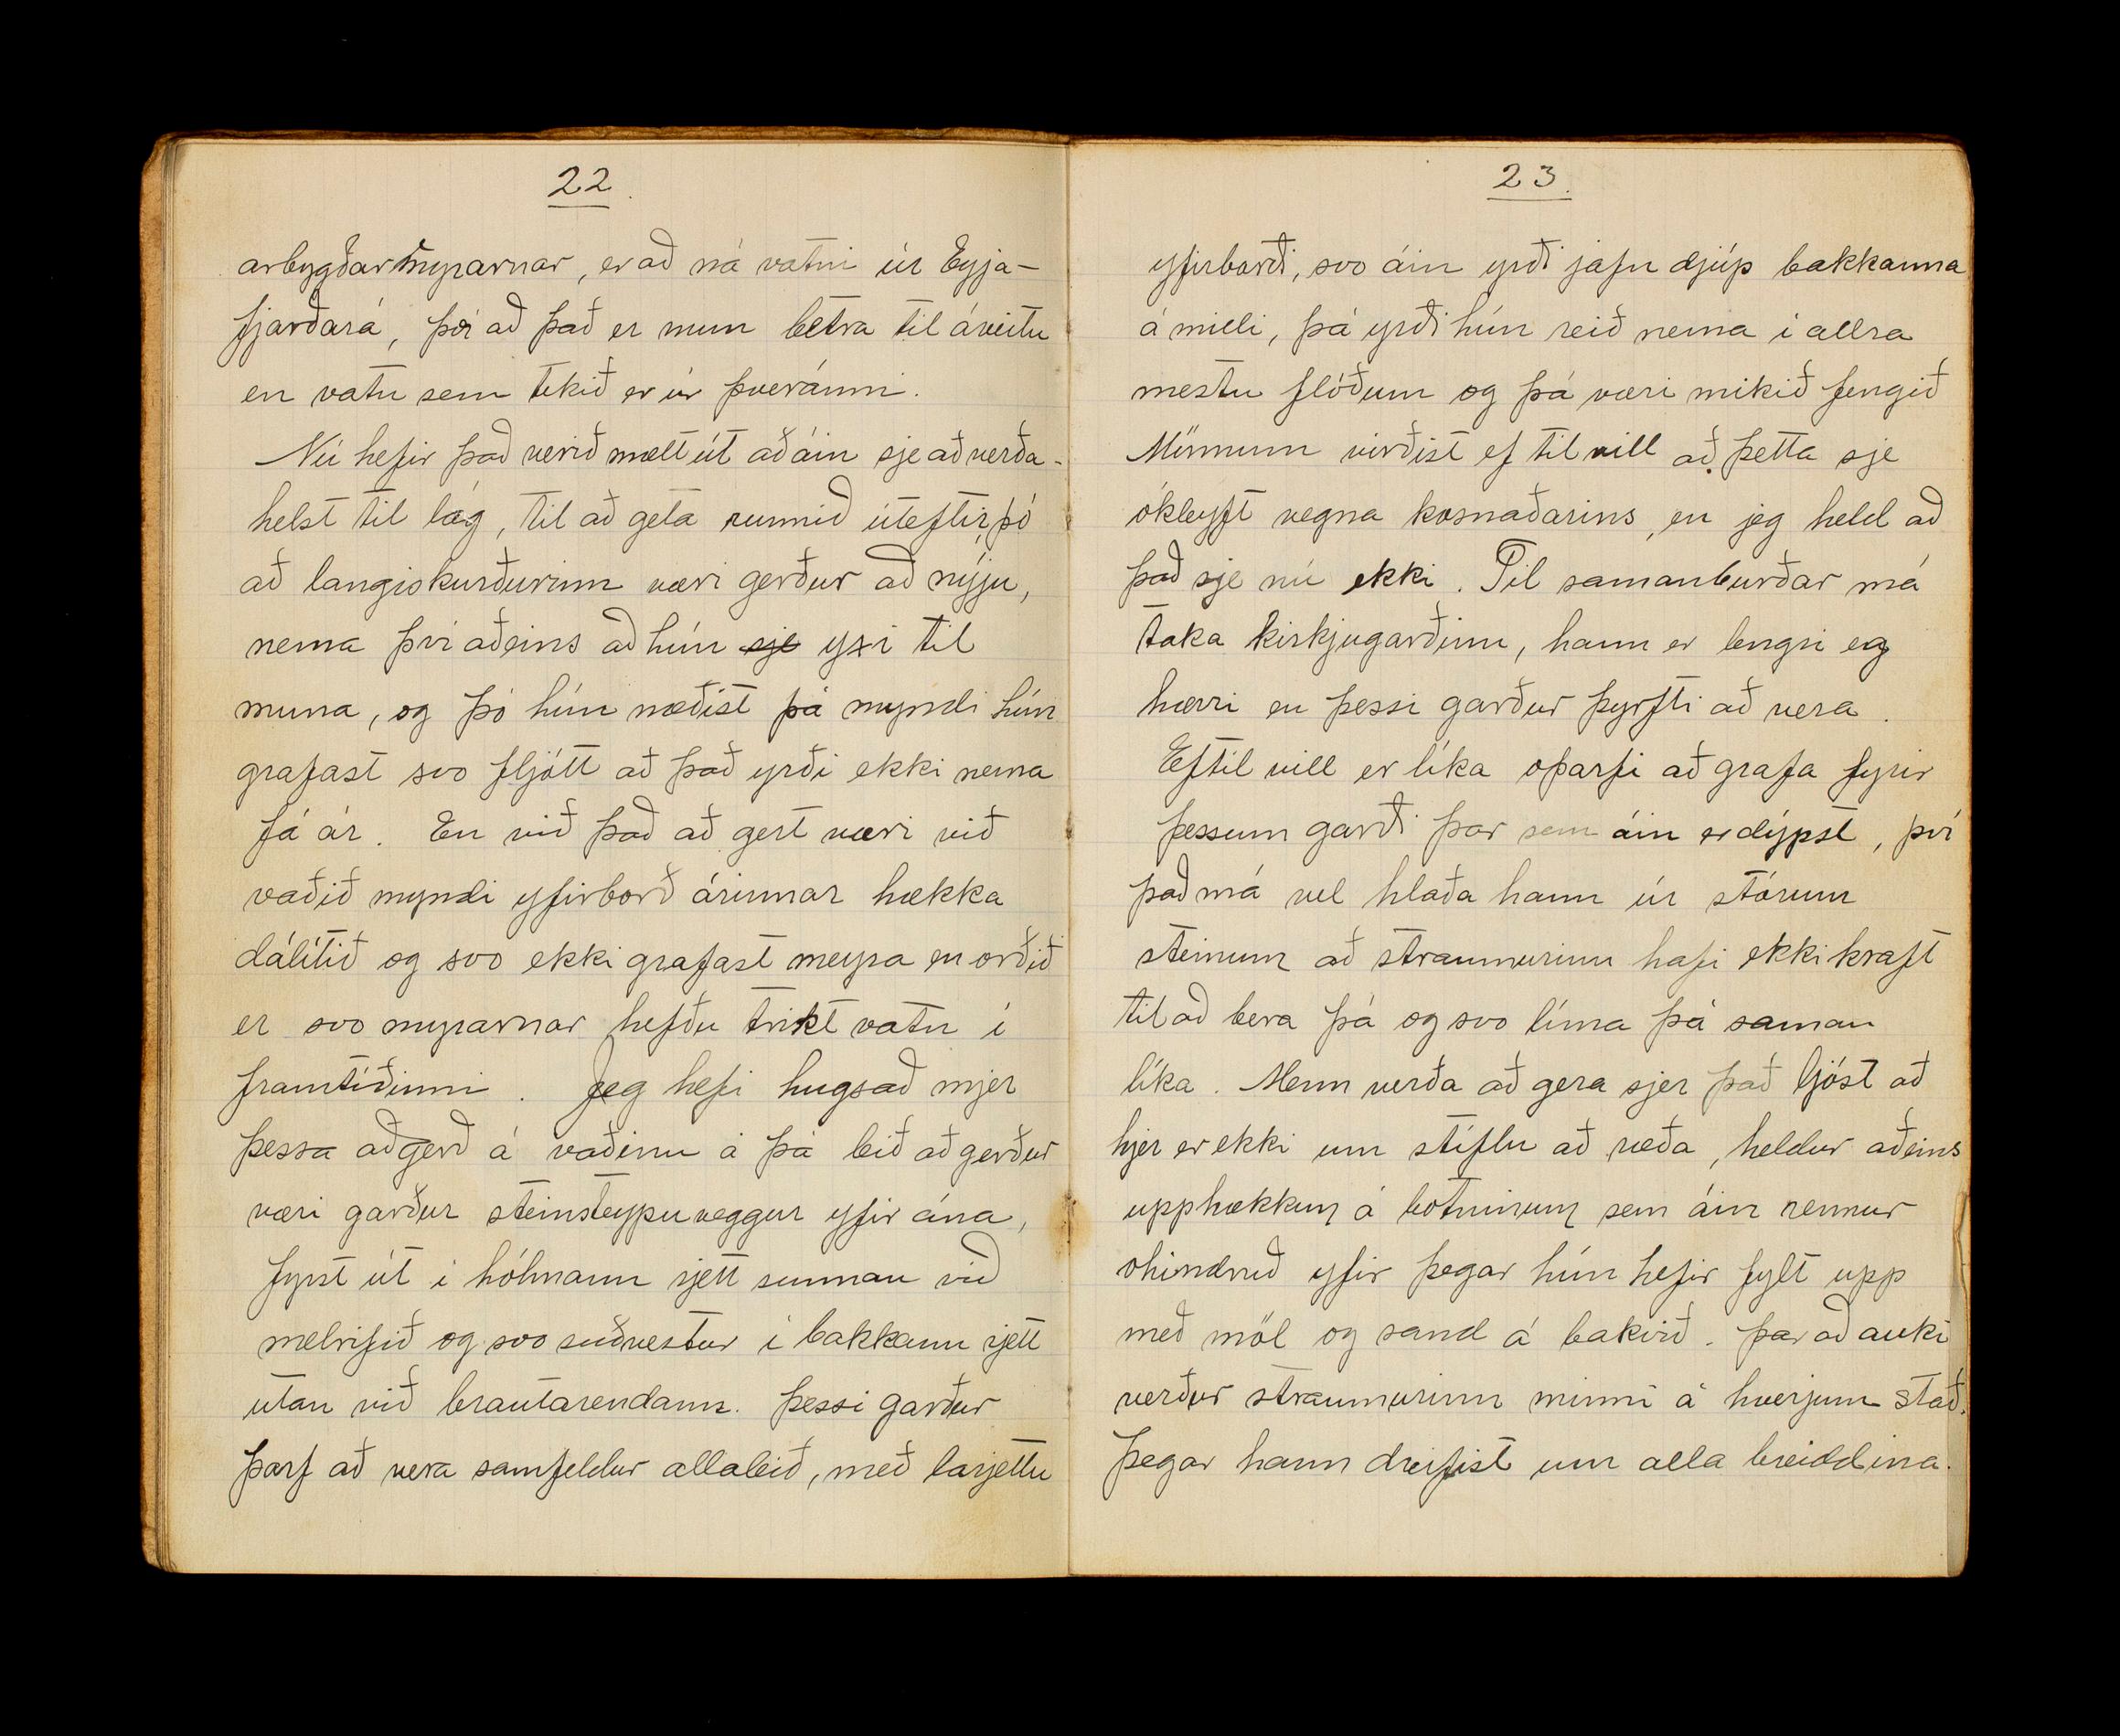 22.
arbygðarmyrarnar, er að ná vatni úr Eyja-
fjarðará, því að það er mun betra til áveitu
en vatn sem tekið er úr þveránni.
Nú hefir það verið mælt út að áin sje að verða-
helst til lág, til að geta runnið úteftir, þó
að langiskurðurinn væri gerður að nýju,
nema því aðeins að hún sje yxi til
muna, og þó hún næðist þá myndi hún
grafast svo fljótt að það yrði ekki nema
fá ár. En við það að gert væri við
vaðið myndi yfirborð árinnar hækka
dálítið og svo ekki grafast meyra en orðið
er svo myrarnar hefðu trikt vatn í
framtíðinni. Jeg hefi hugsað mjer
þessa aðgerð á vaðinu á þá leið að gerður
væri garður steinsteypuveggur yfir ána,
fyrst út i hólmann rjett sunnan við
melrifið og svo suðvestur i bakkann rjett
utan við brautarendann. Þessi garður
þarf að vera samfeldur allaleið, með lárjettu
23.
yfirborði, svo áin yrði jafn djúp bakkanna
á milli, þá yrði hún reið nema i allra
mestu flóðum og þá væri mikið fengið
Mönnum virðist ef til vill að þetta sje
ókleyft vegna kosnaðarins, en jeg held að
það sje nú ekki. Til samanburðar má
taka kirkjugarðinn, hann er lengri og
hærri en þessi garður þyrfti að vera.
Eftil vill er líka oþarfi að grafa fyrir
þessum garði þar sem áin er dýpst, því
það má vel hlaða hann úr stórum
steinum að straumurinn hafi ekki kraft
til að bera þá og svo líma þá saman
líka. Menn verða að gera sjer það ljóst að
hjer er ekki um stíflu að ræða, heldur aðeins
upphækkun á botninum sem áin rennur
ohindruð yfir þegar hún hefir fylt upp
með möl og sand á bakvið. Þar að auki
verður straumurinn minni á hverjum stað.
Þegar hann dreifist um alla breiddina.